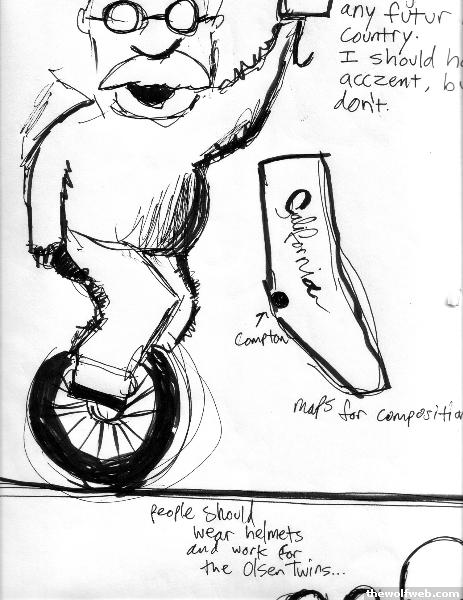 any futur
country.
I should ha
acczent, bu
don't.
California
Compton
maps for composition
people should
wear helmets
and work for
the Olsen Twins...
thewolfweb.com